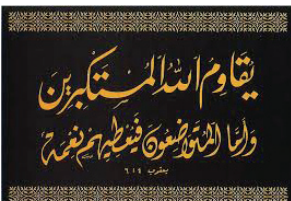 يقاوم الله المستكبرين
وأما المتواضعون فيعطيهم نعمة
يعقوب ٤:٦